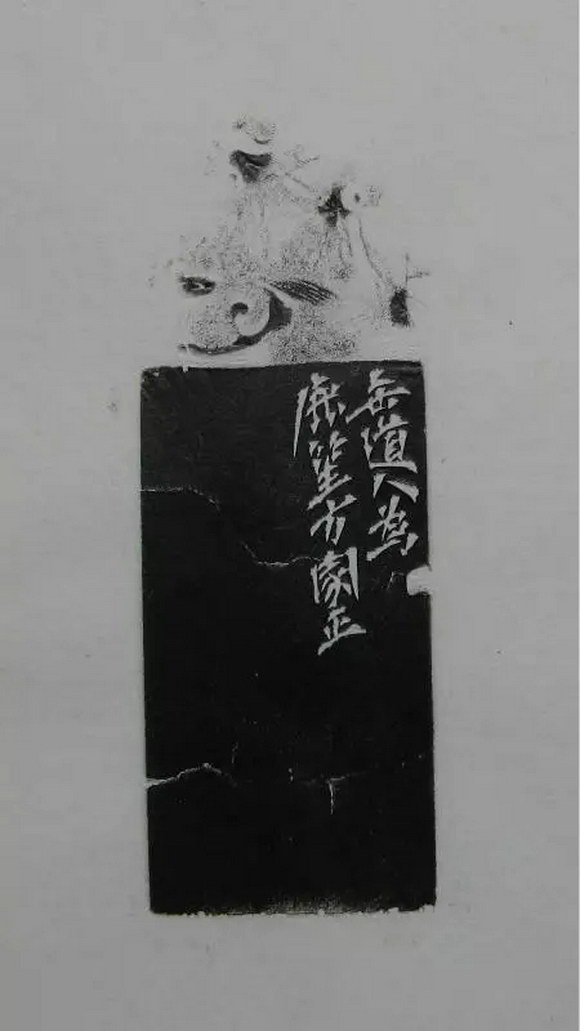 缶道人為
鹿笙方家正